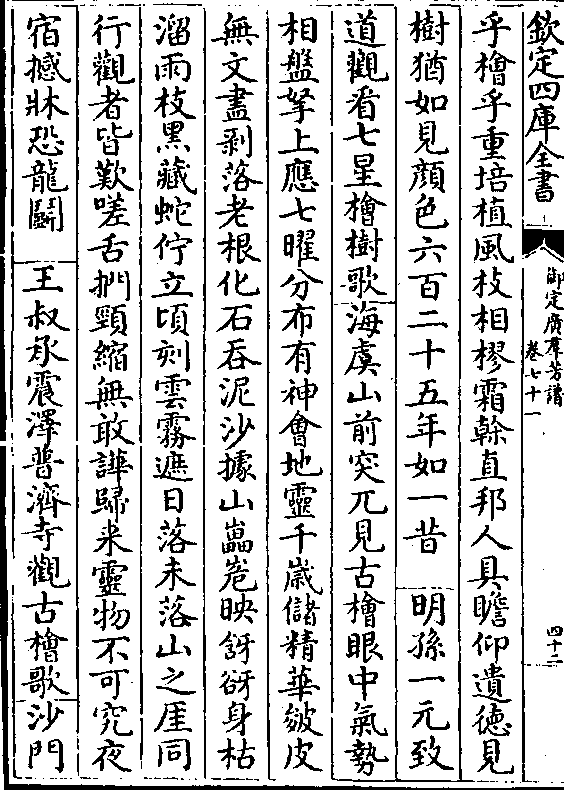 欽定四庫全書
御定廣羣芳譜
卷七十一
四十二
乎檜乎重培植風枝相樛霜榦直邦人具瞻仰遺徳見
樹猶如見顔色六百二十五年如一昔 明孫一元致
道觀看七星檜樹歌海虞山前突兀見古檜眼中氣勢
相盤拏上應七曜分布有神會地靈千嵗儲精華皴皮
無文盡剥落老根化石吞泥沙據山巃嵸映谽谺身枯
溜雨枝黒藏蛇佇立頃刻雲霧遮日落未落山之厓同
行觀者皆歎嗟舌捫頸縮無敢譁歸来靈物不可究夜
宿撼牀恐龍鬭 王叔承震澤普濟寺觀古檜歌沙門